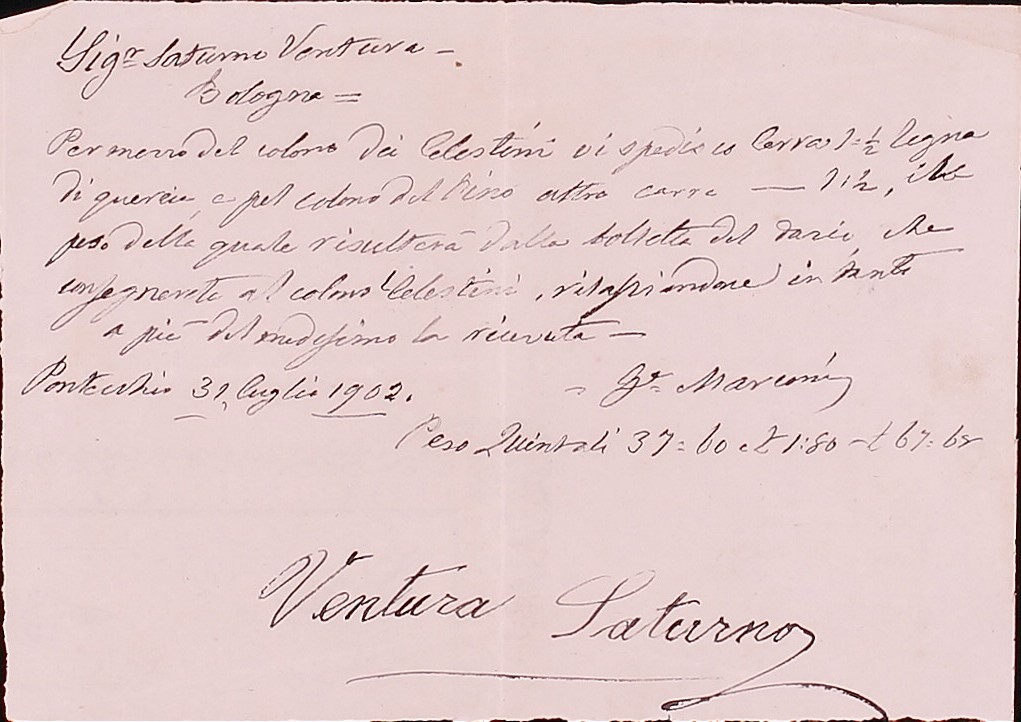 Sigr Saturno Ventura –
Bologna =
Per mezzo del colono dei Celestini vi spedisco Carra 1=½ legna
di quercia, e pel colono del Pino altro carra — 1:½, il
peso della quale risulterà dalla bolletta del dazio, che
consegnerete al colono Celestini, rilasciandone in tanto
a piè del medesimo la ricevuta —
Pontecchio 31 luglio 1902.
Marconi
Peso Quintali 37=60 a £ 1:80 - £ 67=68
Ventura Saturno